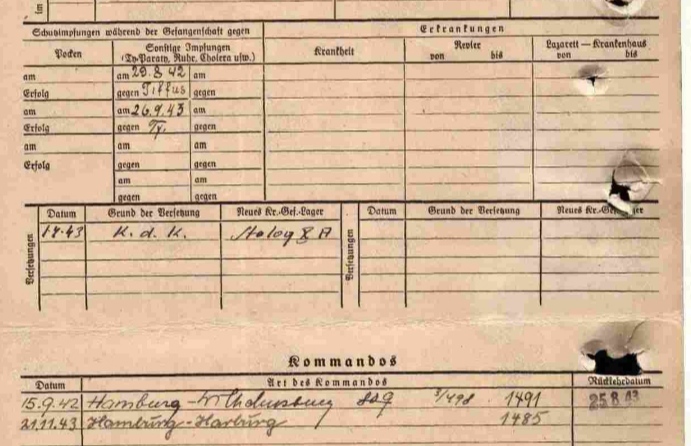 Schutzimpfungen während der Gefangenschaft gegen
Erkrankungen
Pocken
Sonstige Impfungen
(Ty-Paraty, Ruhr, Cholera usw.)
Krankheit
Revier
von bis
Lazarett — Krankenhaus
von bis
am am 29.8.42 am
Erfolg gegen Tiffus gegen
am am 26.9.43 am
Erfolg gegen Ty. gegen
am am am
Erfolg gegen gegen
am am
gegen gegen
Versetzungen
Datum Grund der Versetzung Neues Kr.-Gef.-Lager
K. d. K. Stalag X A
Versetzungen
Datum Grund der Versetzung Neues Kr.-Gef.
Kommandos
Datum Art des Kommandos Rückkehrdatum
15.9.42 Hamburg - 1491 25.8.43
21.11.43 Hamburg - Harburg 1485